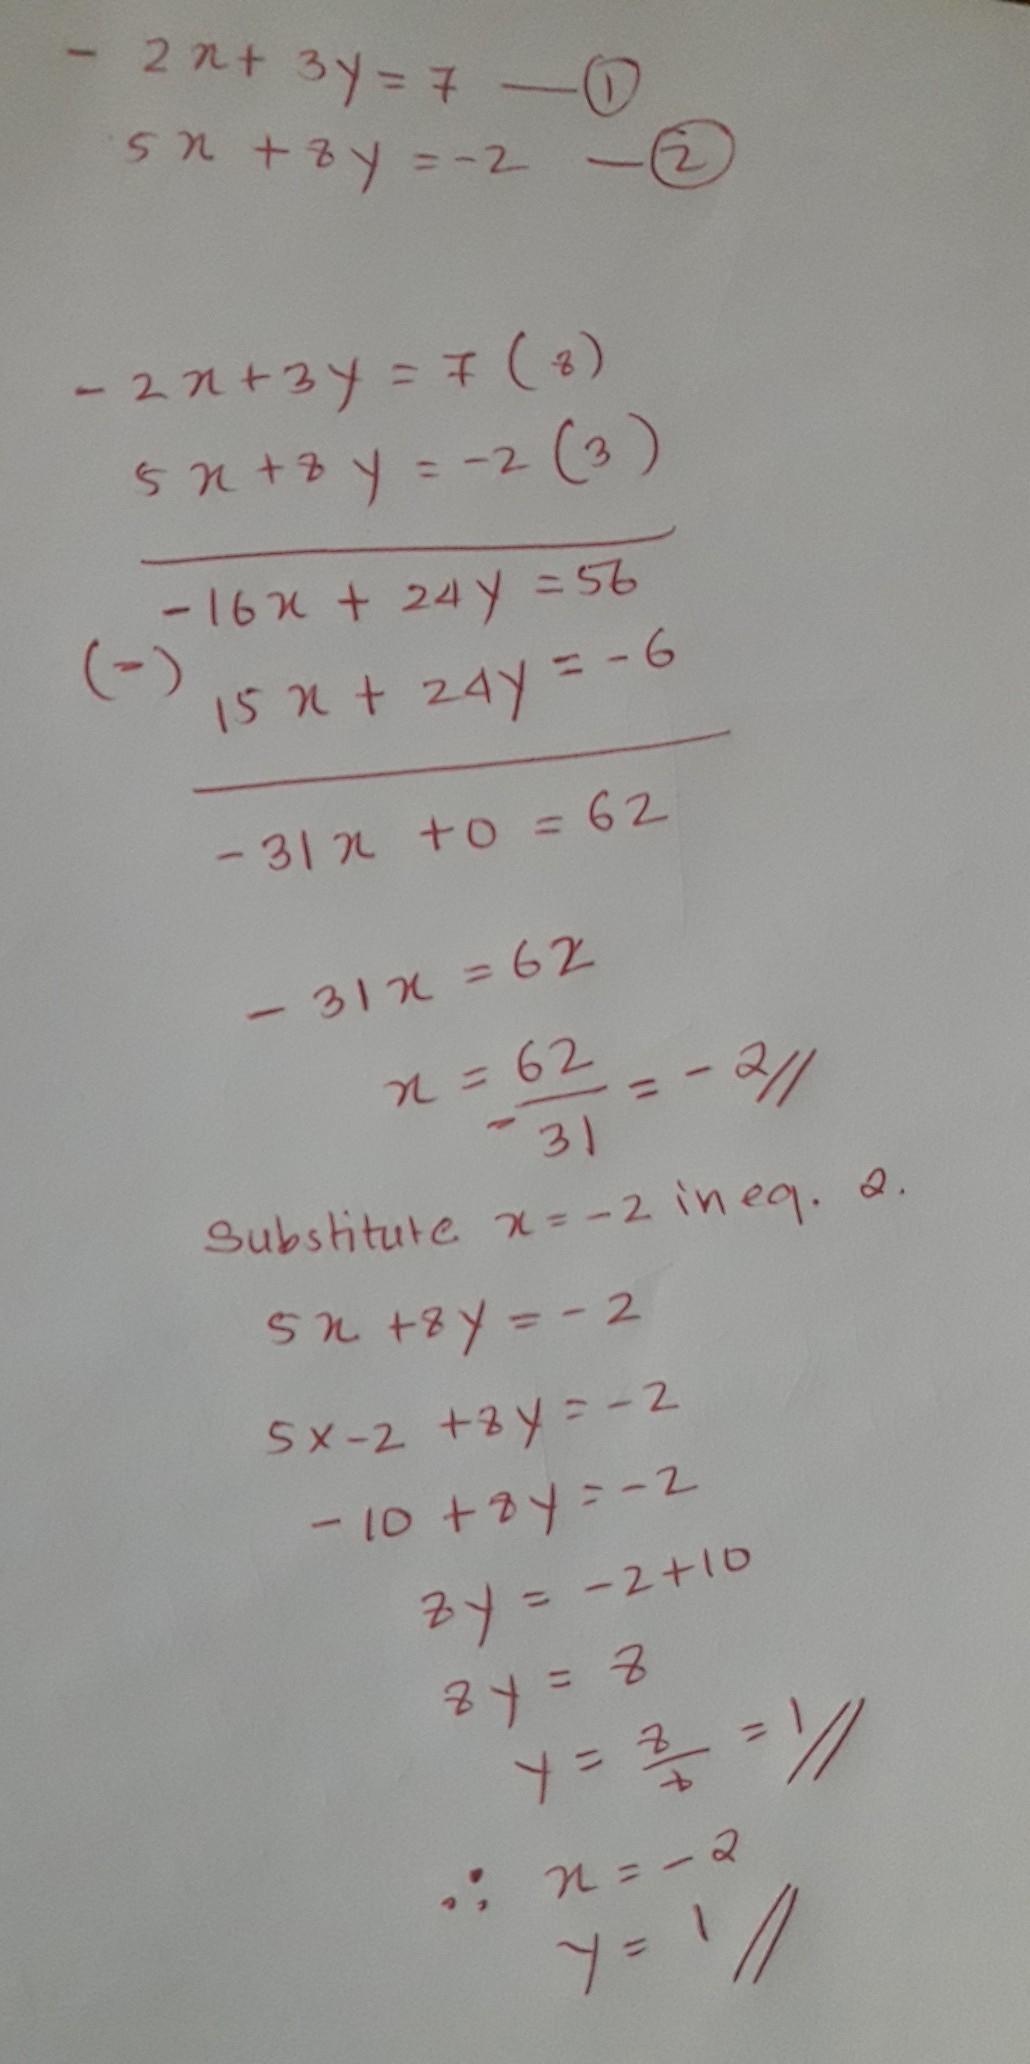 - 2x + 3y = 7 — ①
5x + 8y = -2 — ②
- 2x + 3y = 7 (8)
5x + 8y = -2 (3)
-16x + 24y = 56
(-)
15x + 24y = -6
-31x + 0 = 62
- 31x = 62
x = 62/-31 = -2//
Substitute x = -2 in eq. 2.
5x + 8y = -2
5x-2 + 8y = -2
-10 + 8y = -2
8y = -2+10
8y = 8
y = 8/8 = 1//
∴ x = -2
y = 1//